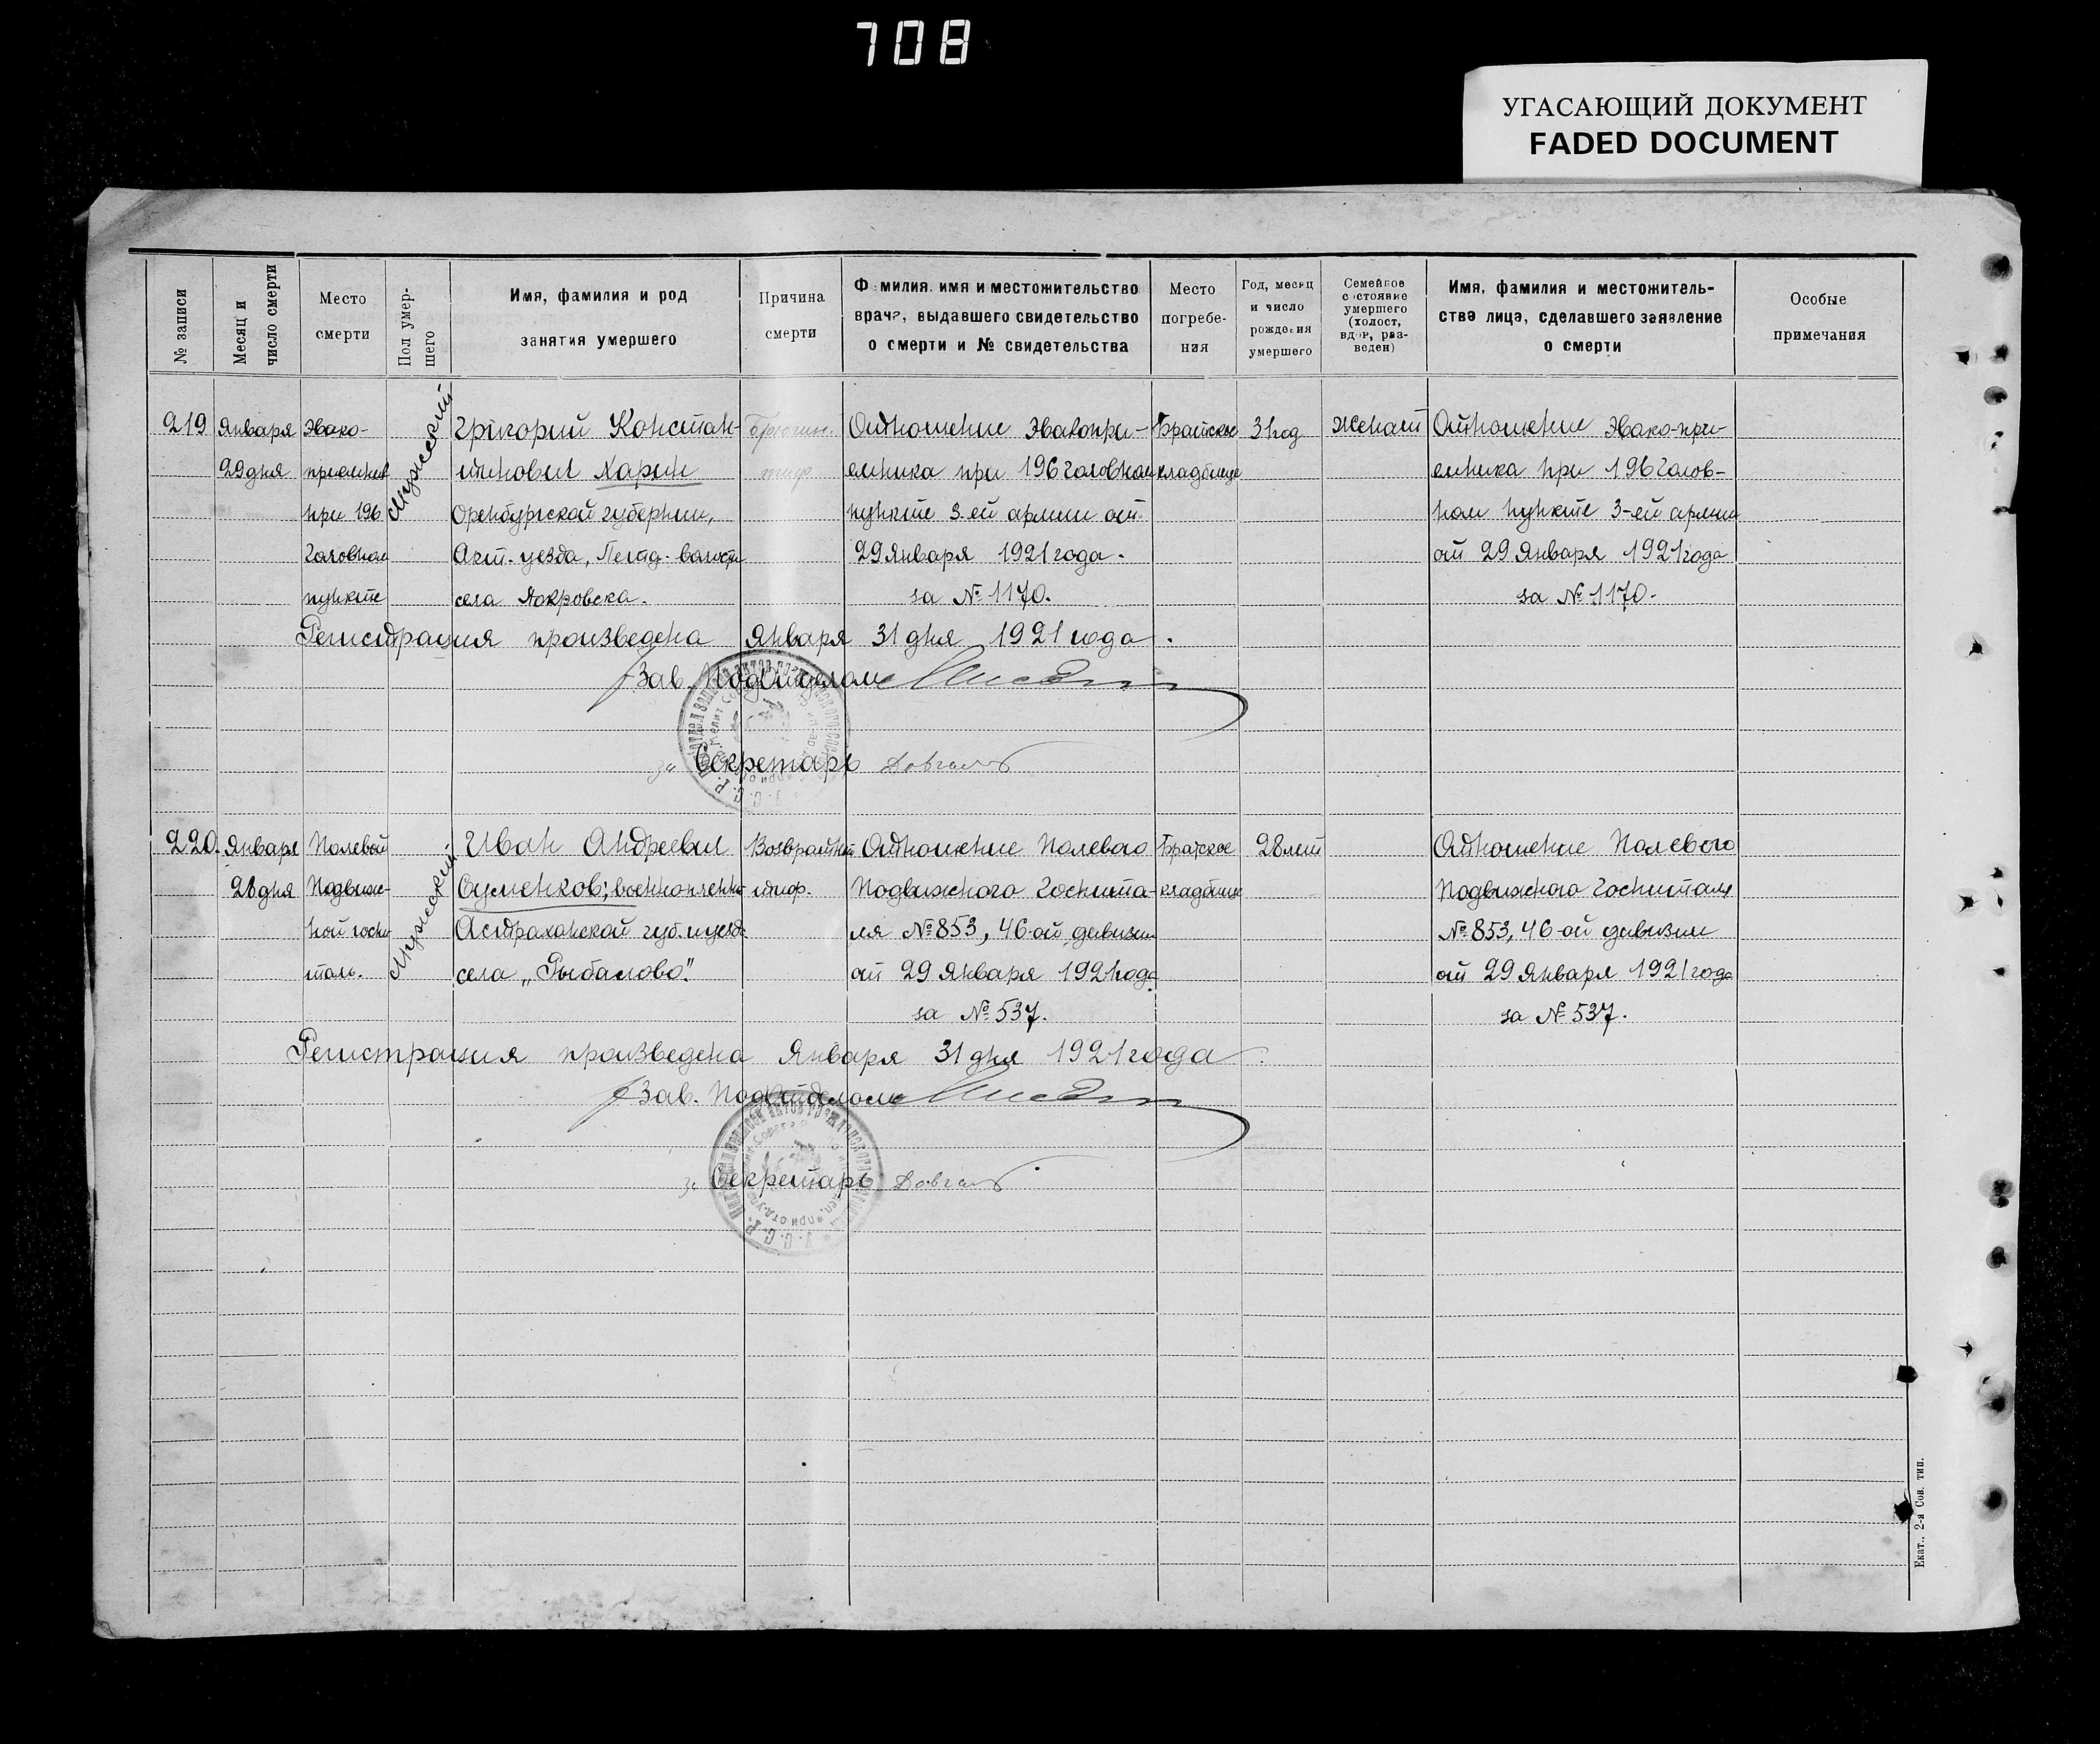 708
УГАСАЮЩИЙ ДОКУМЕНТ
FADED DOCUMENT
№ записи
Месяц и число смерти
Место смерти
Пол умер-шего
Имя, фамилия и род занятия умершего
Причина смерти
Фамилия, имя и местожительство врача, выдавшего свидетельство о смерти и № свидетельства
Место погребе-ния
Год, месяц и число рождения умершего
Семейное состояние умершего (холост, вдов, раз-веден)
Имя, фамилия и местожитель-ства лица, сделавшего заявление о смерти
Особые примечания
219
Января
29 дня
Эвако-
приемник
при 196
головном
пункте
Мужеский
Григорий Констан-
тинович Харин
Оренбургской губернии,
Акт. уезда, волости
села Покровска.
тиф
Отношение Эвакопри-
емника при 196 головном
пункте 3-ей армии от
29 Января 1921 года.
за № 1170.
Братское
кладбище
31 год
Женат
Отношение Эвако-при-
емника при 196 голов-
ном пункте 3-ей армии
от 29 Января 1921 года
за № 1170.
Регистрация произведена Января 31 дня 1921 года.
Зав. Подотделом
за Секретарь
220.
Января
28 дня
Полевой
Подвиж-
ной госпи
таль.
Мужеский
Иван Андреевич
военнопленн
Астраханской губ. и уезда
села „Рыбалово".
Возвратный
тиф.
Отношение Полевого
Подвижного Госпита-
ля № 853, 46-ой дивизии
от 29 Января 1921 года
за № 537.
Братское
кладбище
28 лет
Отношение Полевого
Подвижного Госпиталя
№ 853, 46-ой дивизии
от 29 Января 1921 года
за № 537.
Регистрация произведена Января 31 дня 1921 года.
Зав. Подотделом
за Секретарь
Екат., 2-я Сов. тип.